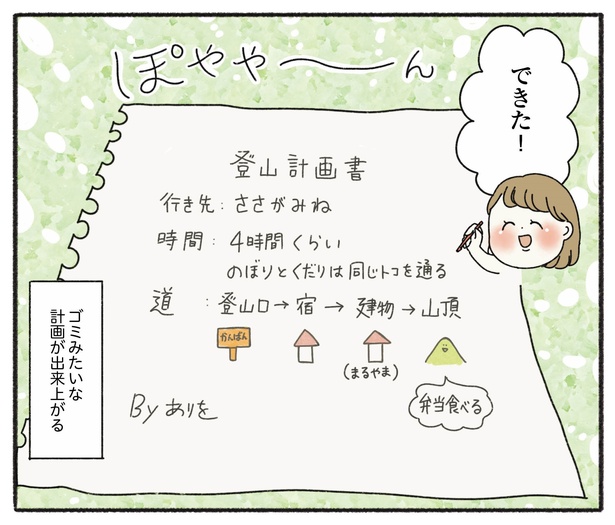 ぽややーーん
できた！
登山計画書
行き先：ささがみね
時間：4時間くらい
のぼりとくだりは同じトコを通る
道：登山口→宿→建物→山頂
かんばん
(まるやま)
弁当食べる
By ありを
ゴミみたいな
計画が出来上がる